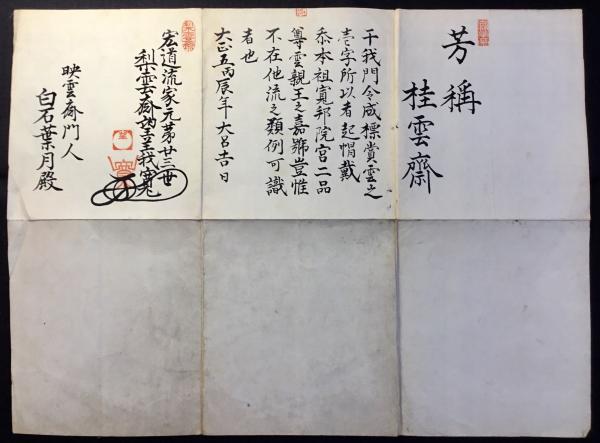 芳稱
桂雲齋
于我門令成標賞雲之
壱字所以者起惝戴
忝本祖寛邦院宮二品
尊雲親王之嘉號豈惟
不在他流之類例可識
者也
大正五丙辰年大呂吉日
宏道流家元第廿三世
梨雲齋
映雲齋門人
白石葉月殿